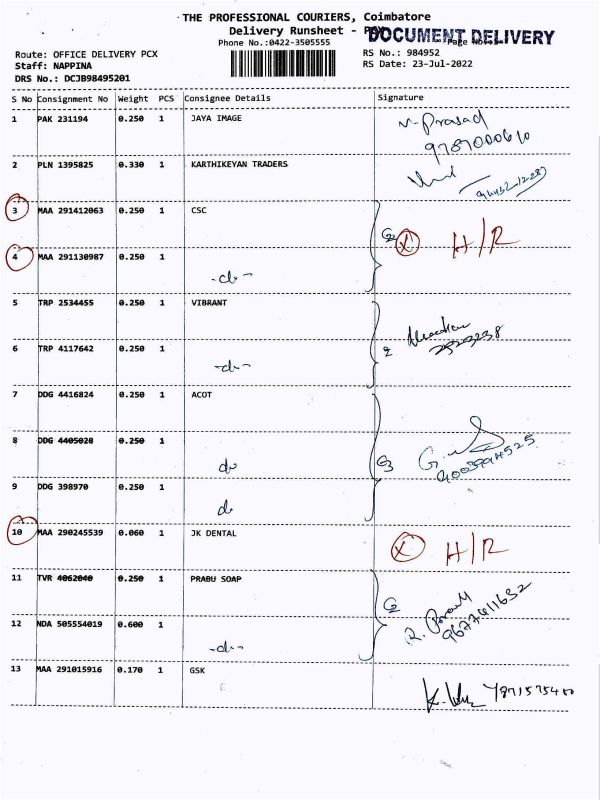 THE PROFESSIONAL COURIERS, Coimbatore
Delivery Runsheet - PCX
DOCUMENT DELIVERY
Phone No.:0422-3505555
Page No
Route: OFFICE DELIVERY PCX
RS No.: 984952
Staff: NAPPINA
RS Date: 23-Jul-2022
DRS No.: DCJB98495201
S No Consignment No Weight PCS Consignee Details Signature
1 PAK 231194 0.250 1 JAYA IMAGE N. Prasad
9787000610
2 PLN 1395825 0.330 1 KARTHIKEYAN TRADERS
3 MAA 291412063 0.250 1 CSC
X H/R
4 MAA 291130987 0.250 1
-do-
5 TRP 2534455 0.250 1 VIBRANT
2
6 TRP 4117642 0.250 1
-do-
7 DDG 4416824 0.250 1 ACOT
8 DDG 4405028 0.250 1
do
9 DDG 398970 0.250 1
do
10 MAA 290245539 0.060 1 JK DENTAL
X H/R
11 TVR 4062040 0.250 1 PRABU SOAP
12 NDA 505554019 0.600 1
-do-
9677411632
13 MAA 291015916 0.170 1 GSK